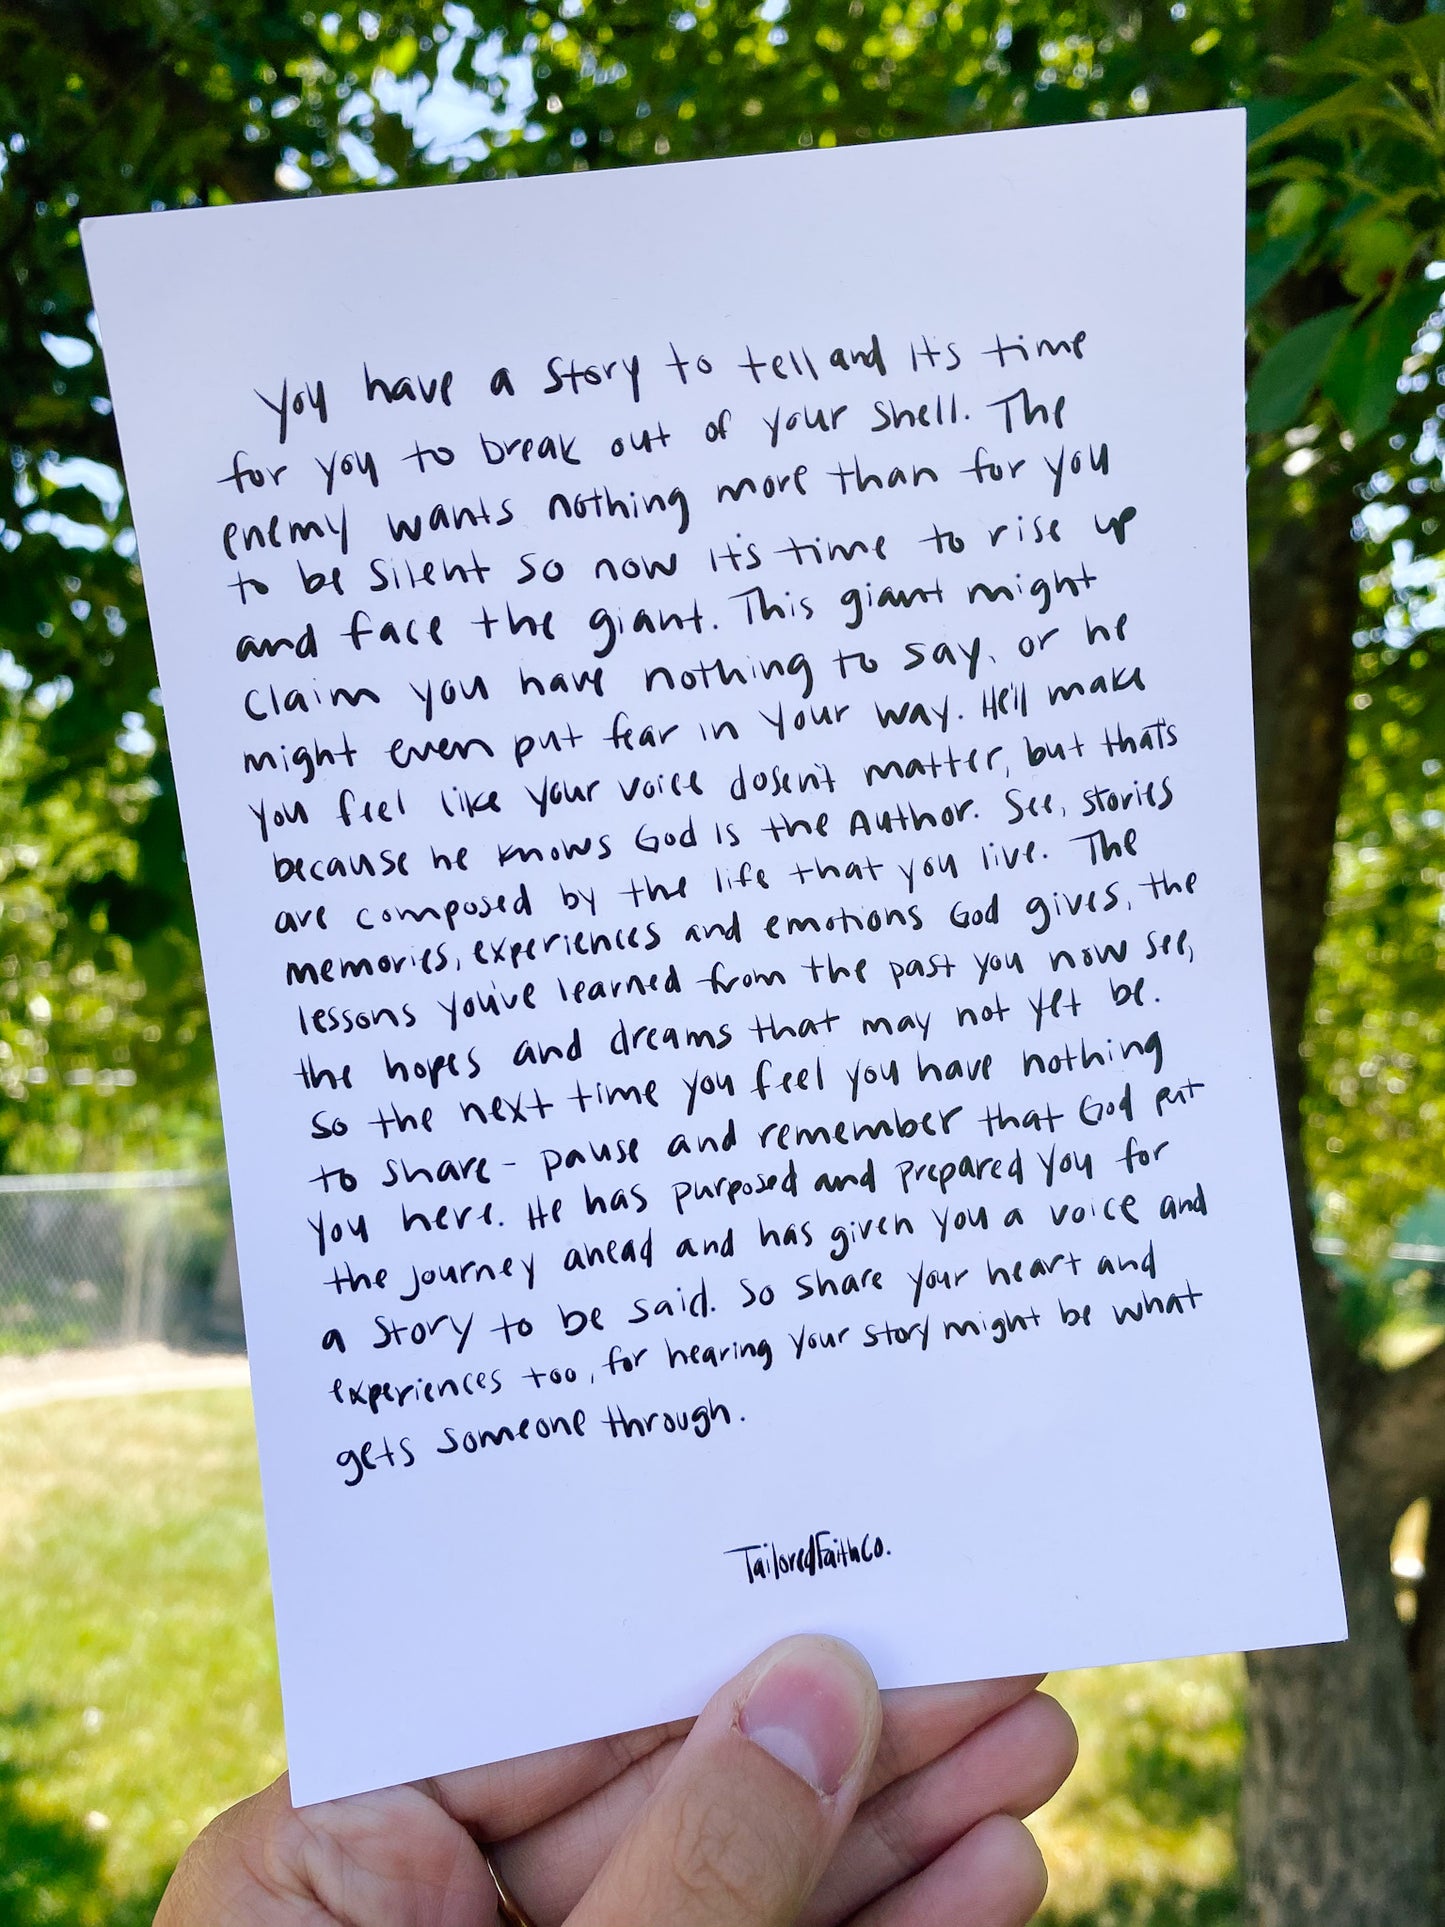 You have a story to tell and it's time
for you to break out of your shell. The
enemy wants nothing more than for you
to be silent so now it's time to rise up
and face the giant. This giant might
claim you have nothing to say, or he
might even put fear in your way. He'll make
you feel like your voice dosen't matter, but that's
because he knows God is the Author. See, stories
are composed by the life that you live. The
memories, experiences and emotions God gives, the
lessons you've learned from the past you now see,
the hopes and dreams that may not yet be.
So the next time you feel you have nothing
to share - pause and remember that God put
you here. He has purposed and prepared you for
the journey ahead and has given you a voice and
a story to be said. So share your heart and
experiences too, for hearing your story might be what
gets someone through.
TailoredFaithCo.